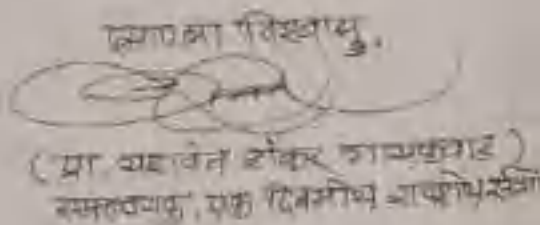 आपला विश्वासु,
(प्रा. यशवंत शंकर गायकवाड)
समन्वयक, एक दिवसीय राष्ट्रीय